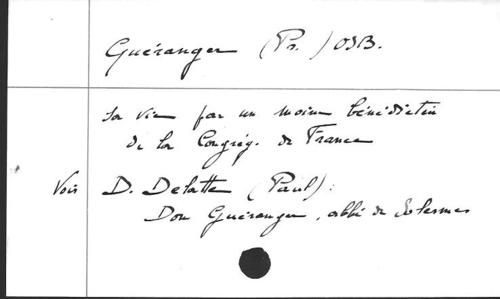 Guéranger (Pr.) OSB.
sa vie par un moine bénédictin
de la Congrég. de France
Voir D. Delatte (Paul):
Dom Guéranger, abbé de Solesmes